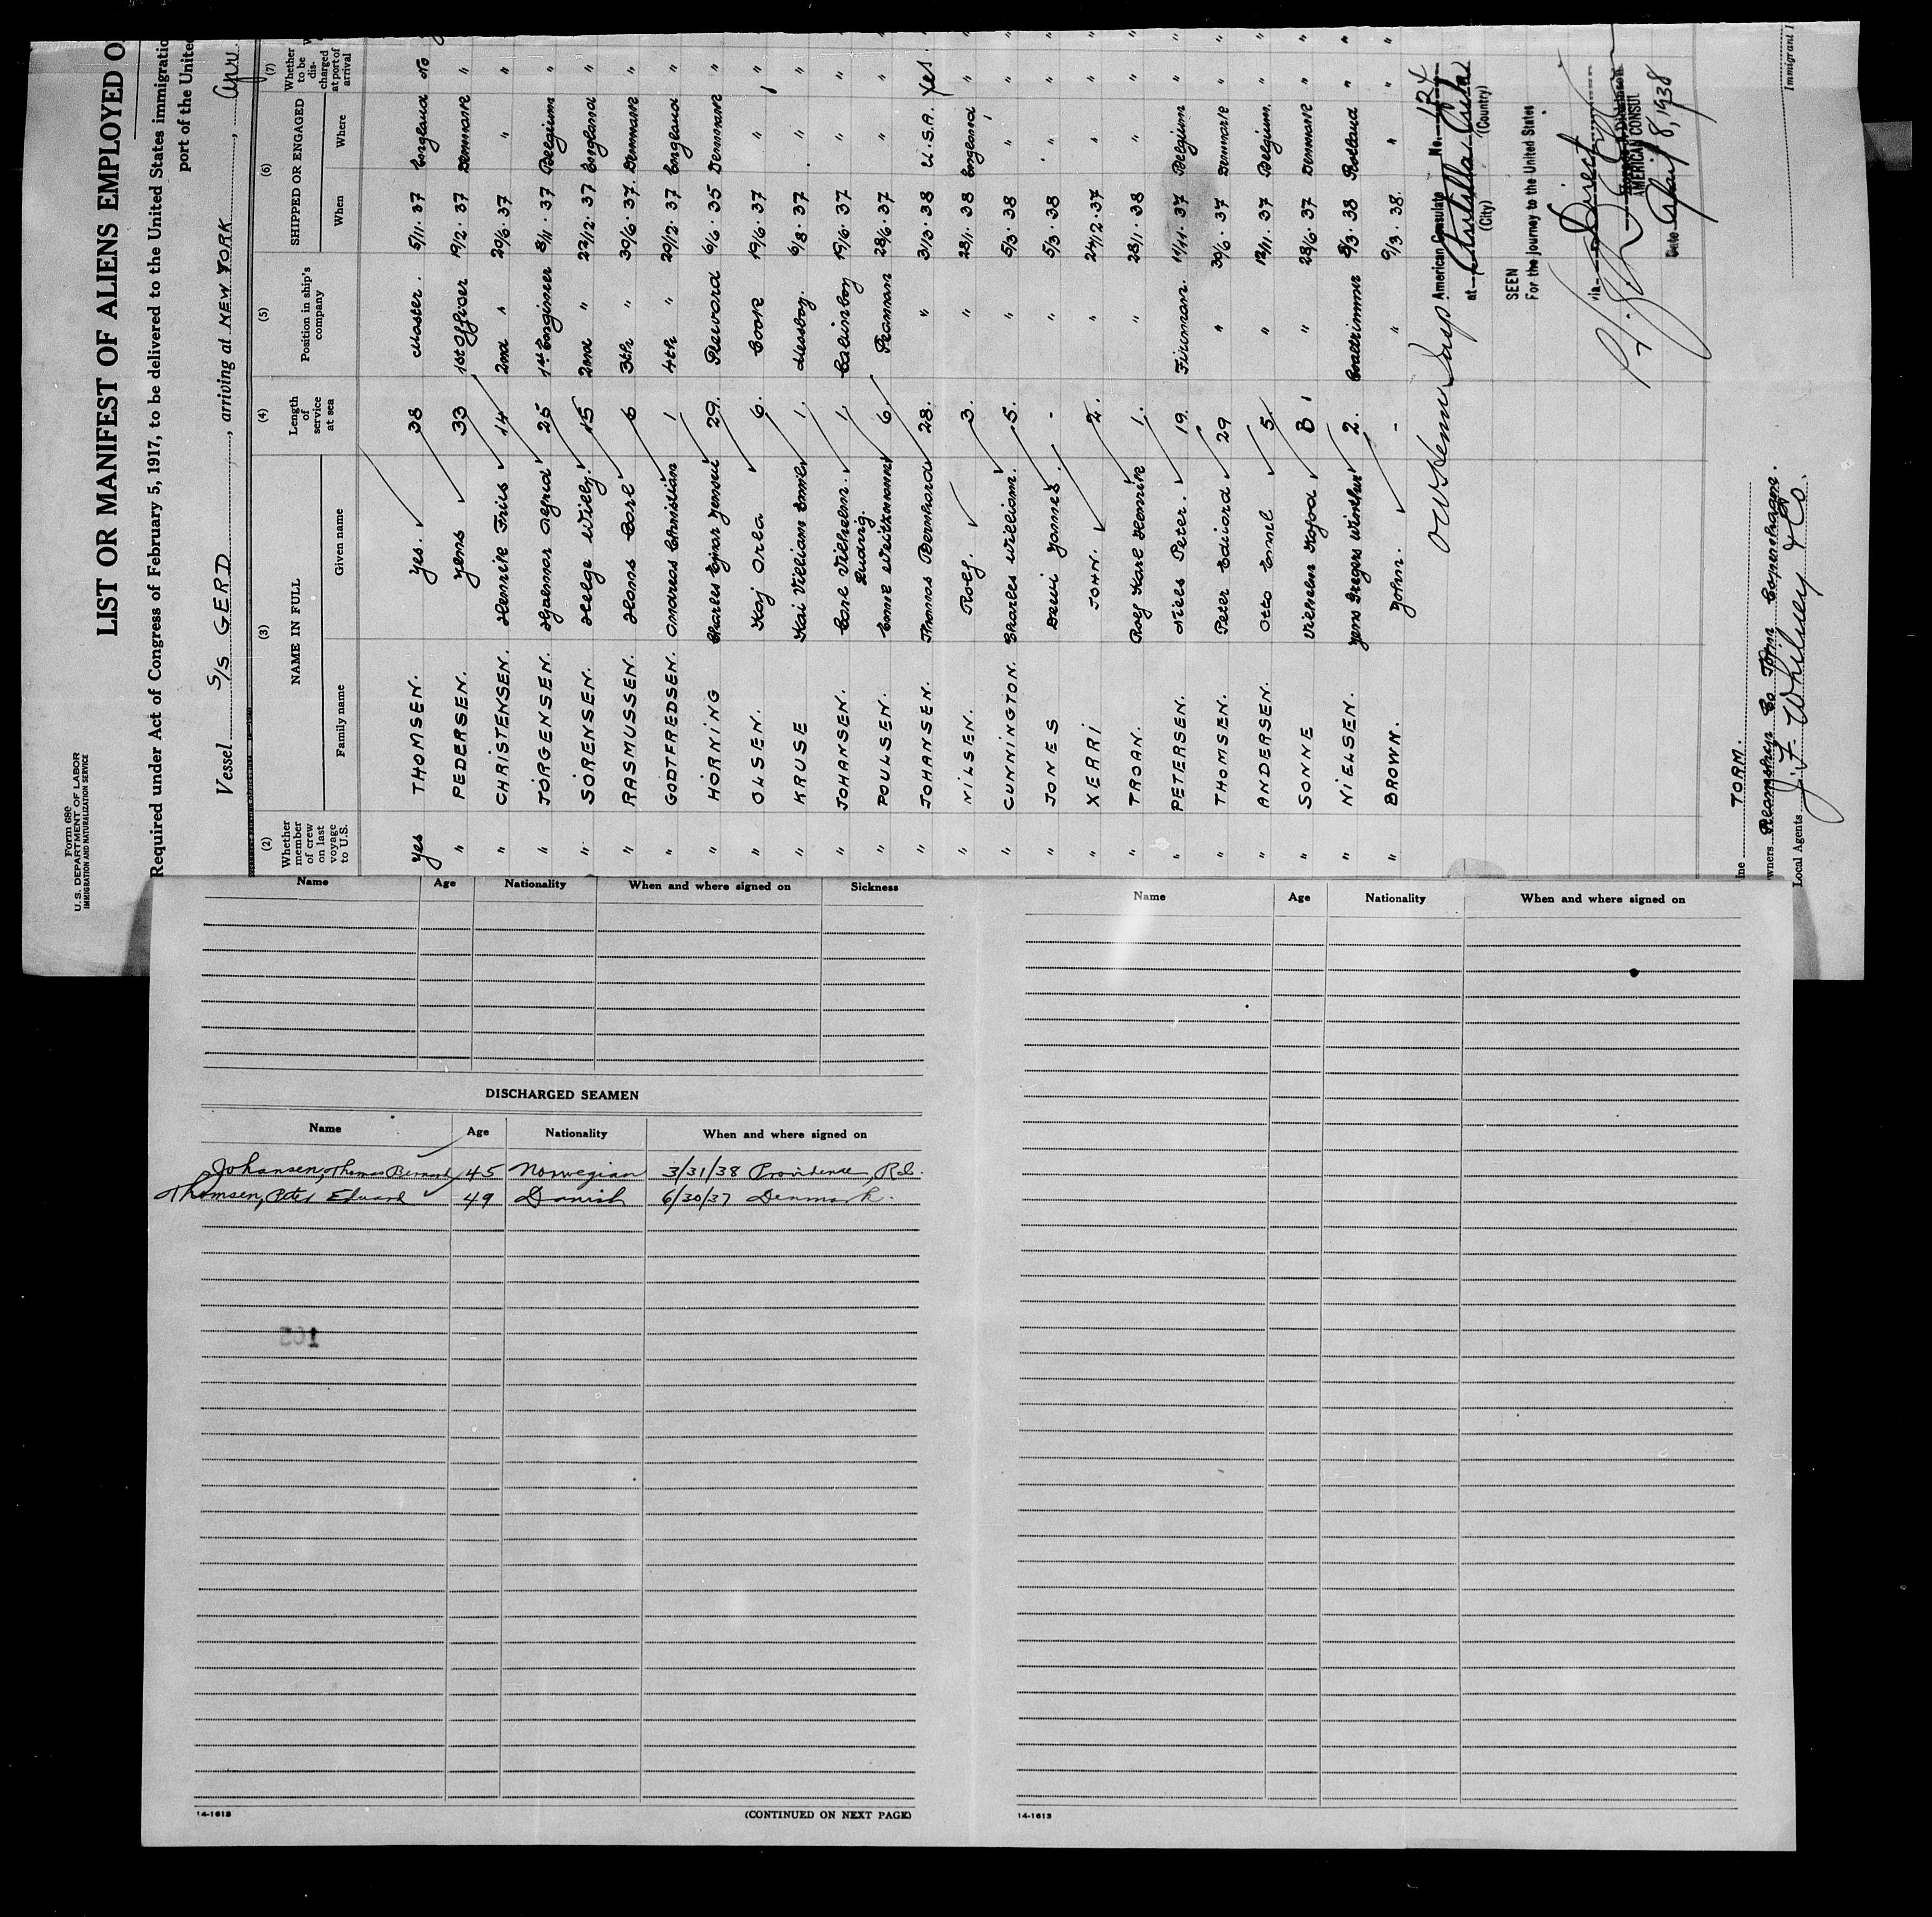 Form 680
U. S. DEPARTMENT OF LABOR
IMMIGRATION AND NATURALIZATION SERVICE
LIST OR MANIFEST OF ALIENS EMPLOYED O
Required under Act of Congress of February 5, 1917, to be delivered to the United States immigratio
port of the United
Vessel S/S GERD, arriving at NEW YORK, Apr.
(2) (3) (4) (5) (6) (7)
Whether member of crew on last voyage to U.S. NAME IN FULL Length of service at sea Position in ship's company SHIPPED OR ENGAGED Whether to be discharged at port of arrival
Family name Given name When Where
yes THOMSEN. 38 Master. 5/11. 37 England No
" PEDERSEN. Jens 33 1st Officer 19/2. 37 Denmark "
" CHRISTENSEN. Henrik Friis 14 2nd " 20/6. 37 " "
" JÖRGENSEN. Hjalmar Alfrid 25 1st Engineer 8/11. 37 Belgium "
" SÖRENSEN. Helge Willy. 15 2nd " 22/12. 37 England "
" RASMUSSEN. Hans Carl 6 3th " 30/6. 37. Denmark "
" GODTFREDSEN. Andreas Christian 1 4th " 20/12. 37 England "
" HÖRNING Charles Ejnar Jensen 29. Steward 6/6. 35 Denmark "
" OLSEN. Kaj Orla 6. Cook 19/6. 37 " "
" KRUSE Kai Villiam Emil 1. Messboy. 6/8. 37 " "
" JOHANSEN. Carl Vilhelm. Ludvig. 1. Cabinboy 19/6. 37 " "
" POULSEN. 6. Seaman 28/6. 37 " "
" JOHANSEN. Thomas Bernhard 28. " 31/3. 38 U.S.A. Yes.
" NILSEN. Rolf. 3. " 28/1. 38 England "
" CUNNINGTON. Charles William. 5. " 5/3. 38 " "
" JONES James. - " 5/3. 38 " "
" XERRI JOHN. 2. " 24/12. 37 " "
" TROAN. Rolf Karl Henrik 1. " 28/1. 38 " "
" PETERSEN. Niels Peter. 19. Fireman. 11/11. 37 Belgium "
" THOMSEN. Peter Edvard 29 " 30/6. 37 Denmark "
" ANDERSEN. Otto Emil 5. " 12/11. 37 Belgium. "
" SONNE Vilhelm Kofod 8 " 28/6. 37 Denmark "
" NIELSEN. Jens Gregers Winther 2. Coaltrimmer 8/3. 38 Holland "
" BROWN. John. - " 9/3. 38. " "
American Consulate No. 124
at Antilla Cuba
(City) (Country)
SEEN
For the journey to the United States
via Direct
AMERICAN CONSUL
Date April 8, 1938
ine TORM.
wners Steamship Co Torm Copenhagen.
Local Agents J. F. Whitney & Co.
Immigrant I
Name Age Nationality When and where signed on Sickness
DISCHARGED SEAMEN
Name Age Nationality When and where signed on
Johansen, Thomas Bernard 45 Norwegian 3/31/38 Providence, R.I.
Thomsen, Peter Edvard 49 Danish 6/30/37 Denmark.
14-1613 (CONTINUED ON NEXT PAGE)
Name Age Nationality When and where signed on
14-1613